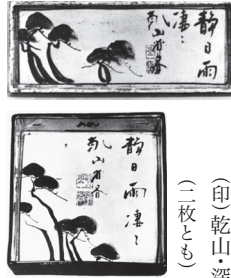 静日雨
凄〻
乾山省書
静日雨凄〻
乾山省書
(印)乾山・深
(二枚とも)